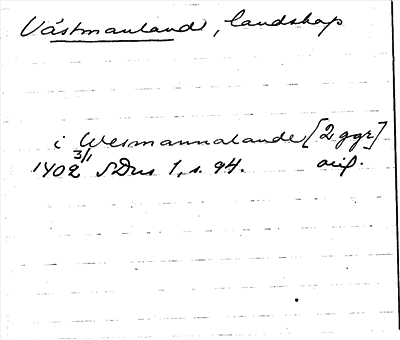 Västmanland, landskap
i Wesmannalande [2 ggr]
1402 3/1 SDns 1, s. 94. orig.